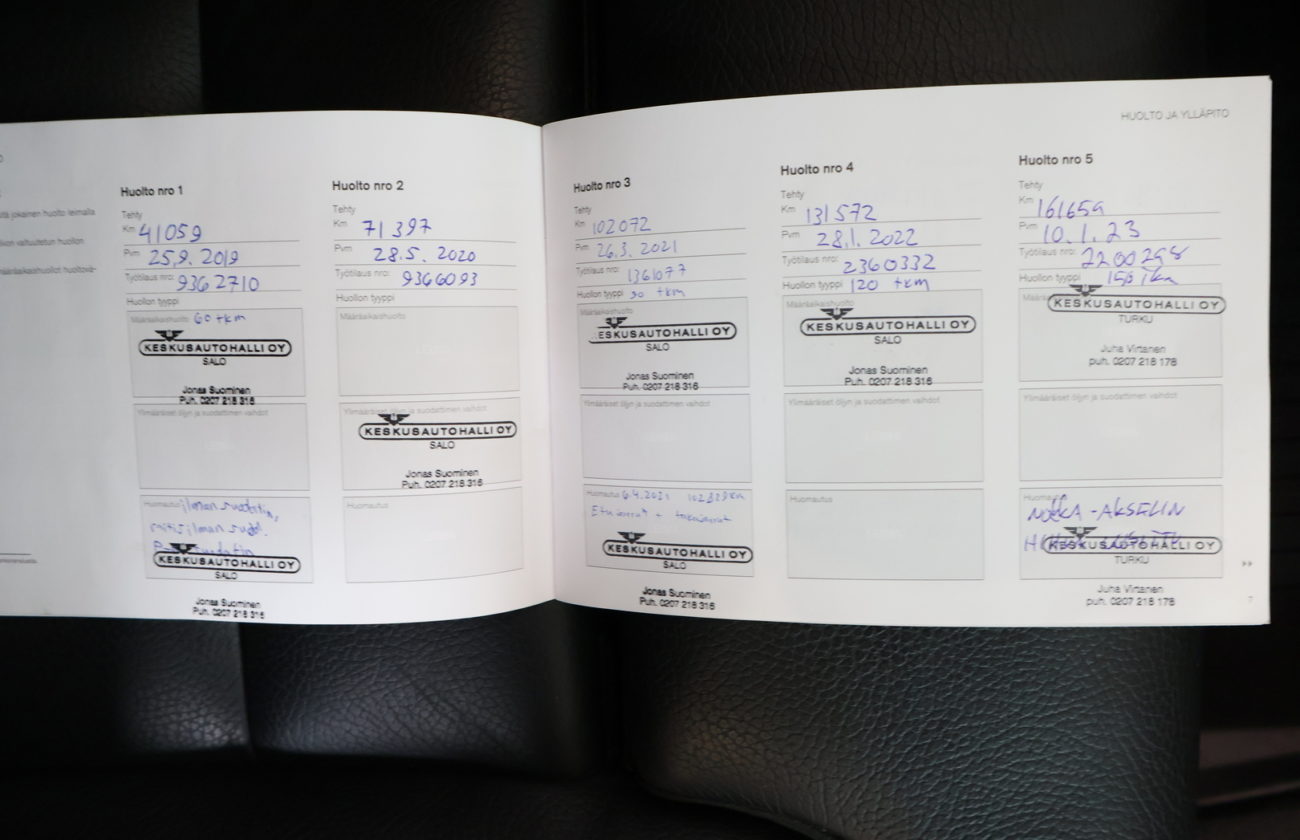 HUOLTO JA YLLÄPITO
jokainen huolto leimalla
valtuutetun huollon
Huolto nro 1
Tehty
Km 41059
Pvm 25.9.2019
Työtilaus nro: 9362710
Huollon tyyppi
Määräaikaishuolto 60 tkm
KESKUSAUTOHALLI OY
SALO
Jonas Suominen
Puh. 0207 218 316
Ylimääräiset öljyn ja suodattimen vaihdot
Huomautus
KESKUSAUTOHALLI OY
SALO
Jonas Suominen
Puh. 0207 218 316
Huolto nro 2
Tehty
Km 71397
Pvm 28.5.2020
Työtilaus nro: 9366093
Huollon tyyppi
Määräaikaishuolto
Ylimääräiset öljyn ja suodattimen vaihdot
KESKUSAUTOHALLI OY
SALO
Jonas Suominen
Puh. 0207 218 316
Huomautus
Huolto nro 3
Tehty
Km 102072
Pvm 26.3.2021
Työtilaus nro: 1361077
Huollon tyyppi 90 tkm
Määräaikaishuolto
ESKUSAUTOHALLI OY
SALO
Jonas Suominen
Puh. 0207 218 316
Ylimääräiset öljyn ja suodattimen vaihdot
Huomautus 6.4.2021
KESKUSAUTOHALLI OY
SALO
Jonas Suominen
Puh. 0207 218 316
Huolto nro 4
Tehty
Km 131572
Pvm 28.1.2022
Työtilaus nro: 2360332
Huollon tyyppi 120 tkm
Määräaikaishuolto
KESKUSAUTOHALLI OY
SALO
Jonas Suominen
Puh. 0207 218 316
Ylimääräiset öljyn ja suodattimen vaihdot
Huomautus
Huolto nro 5
Tehty
Km 161659
Pvm 10.1.23
Työtilaus nro: 2200298
Huollon tyyppi
KESKUSAUTOHALLI OY
TURKU
Juha Virtanen
puh. 0207 218 178
Ylimääräiset öljyn ja suodattimen vaihdot
Huomautus
-AKSELIN
KESKUSAUTOHALLI OY
TURKU
Juha Virtanen
puh. 0207 218 178
7